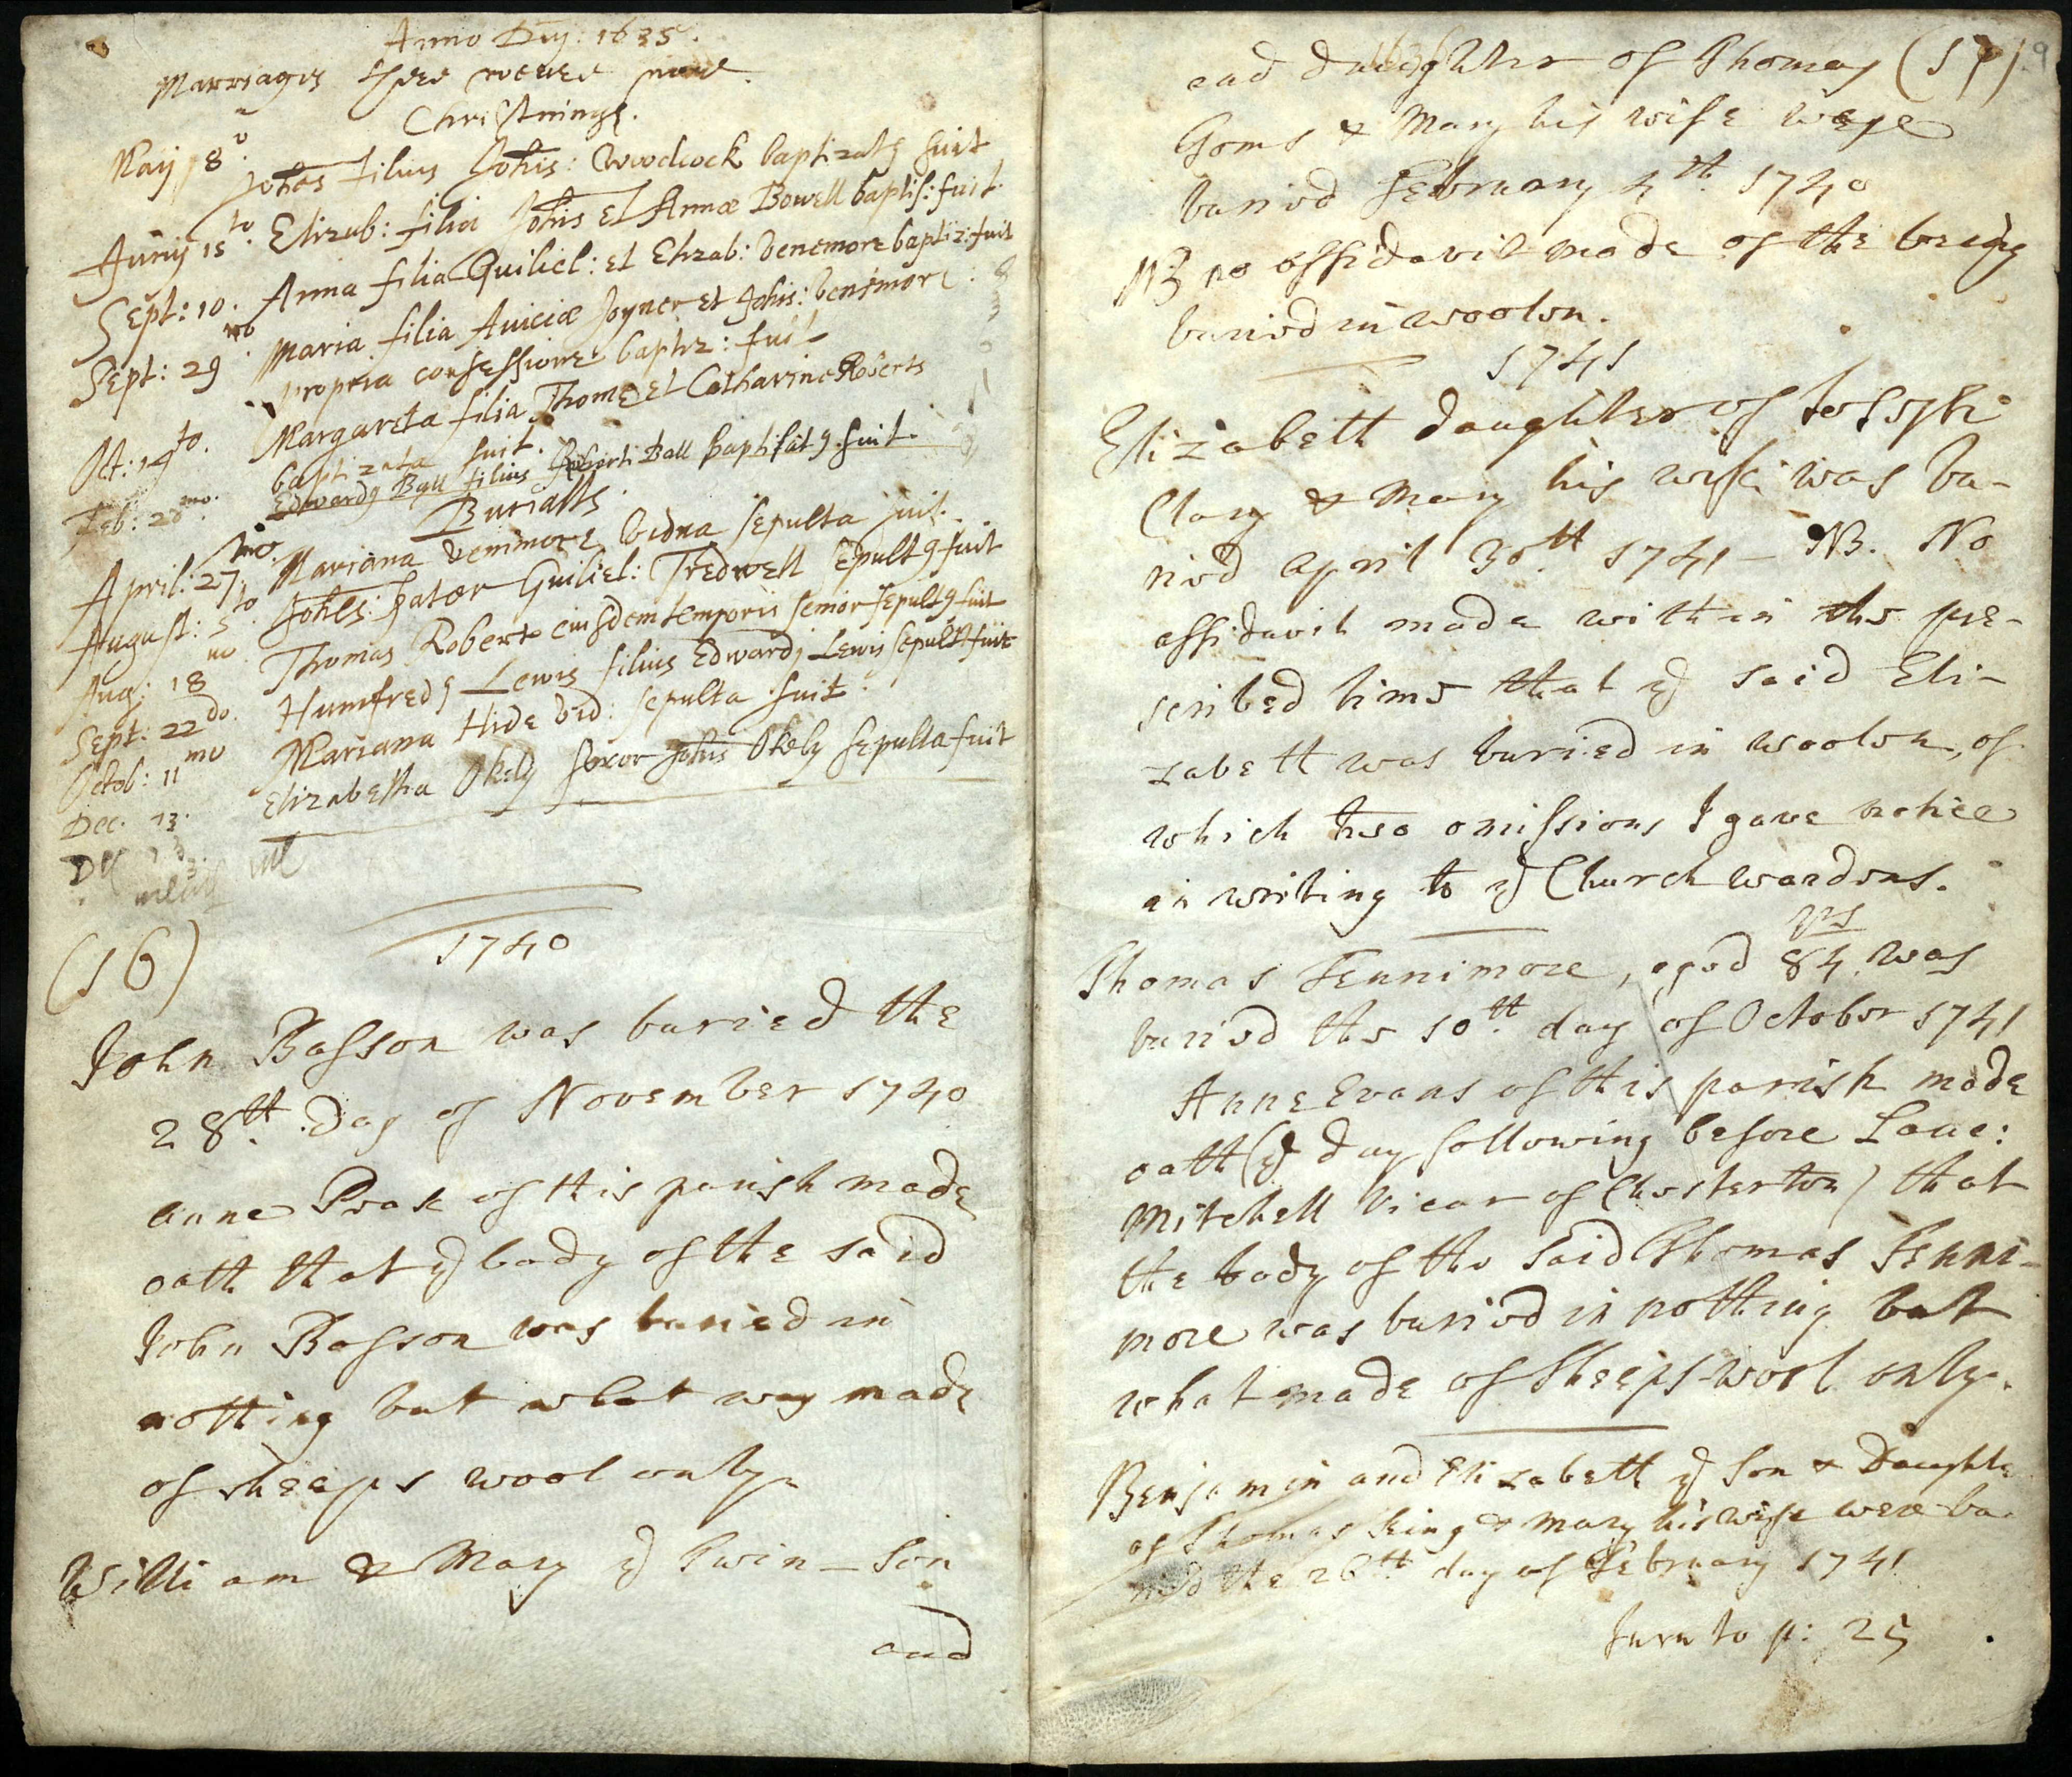 Anno Dnj: 1635.
Marriages there weere none.
Christnings.
Maij 8o. Johes filius Johis: Woodcock baptizatq fuit
Junij 15to. Elizab: filia Johis et Annæ Bowell baptis: fuit.
Sept: 10. Anna filia Guiliel: et Elizab: Venemore baptiz: fuit
Sept: 29no. Maria filia Aviciæ Joyner et Johis: Venemore:
propria confessione baptiz: fuit
Oct: 14to. Margareta filia Thomę et Catharine Roberts
baptizata fuit.
Feb: 28mo. Edwardq Ball filius Roberti Ball baptisatq fuit.
Burialls.
April: 27mo. Mariana Venimore vidua sepulta fuit.
August: 5to. Johes: Pater Guiliel: Tredwell sepultq fuit
Aug: 18no Thomas Roberts eiusdem temporis senior sepultq fuit
Sept: 22do. Humfredq Lewis filius Edwardj Lewis sepultq fuit
Octob: 11mo Mariana Hide vid: sepulta fuit.
Dec. 13. Elizabetha Okely uxor Johis Okely sepulta fuit
(16)
1740
John Basson was buried the
28th. Day of November 1740
Anne Peak of this parish made
oath that ye body of the said
John Basson was buried in
nothing but what was made
of sheeps wool only.
William & Mary ye Twin-Son
and
and daughter of Thomas (17)
Goms & Mary his wife were
buried February 4th. 1740
NB no affidavit made of the being
buried in woolen.
1741
Elizabeth daughter of Joseph
Clary & Mary his wife was bu-
ried April 30th. 1741 - NB. No
affidavit made within the pre-
scribed time that ye said Eli-
zabeth was buried in woolen, of
which two omissions I gave notice
in writing to ye Churchwardens.
Thomas Fennimore, aged 84 yrs was
buried the 10th. day of October 1741
Anne Evans of this parish made
oath (ye day following before Laue:
Mitchell Vicar of Chesterton) that
the body of the said Thomas Fenni-
more was buried in nothing but
what made of Sheeps-wool only.
Benjamin and Elizabeth ye Son & Daughte
of Thomas King & Mary his wife were bu-
ried the 26th. day of February 1741
turn to p: 25